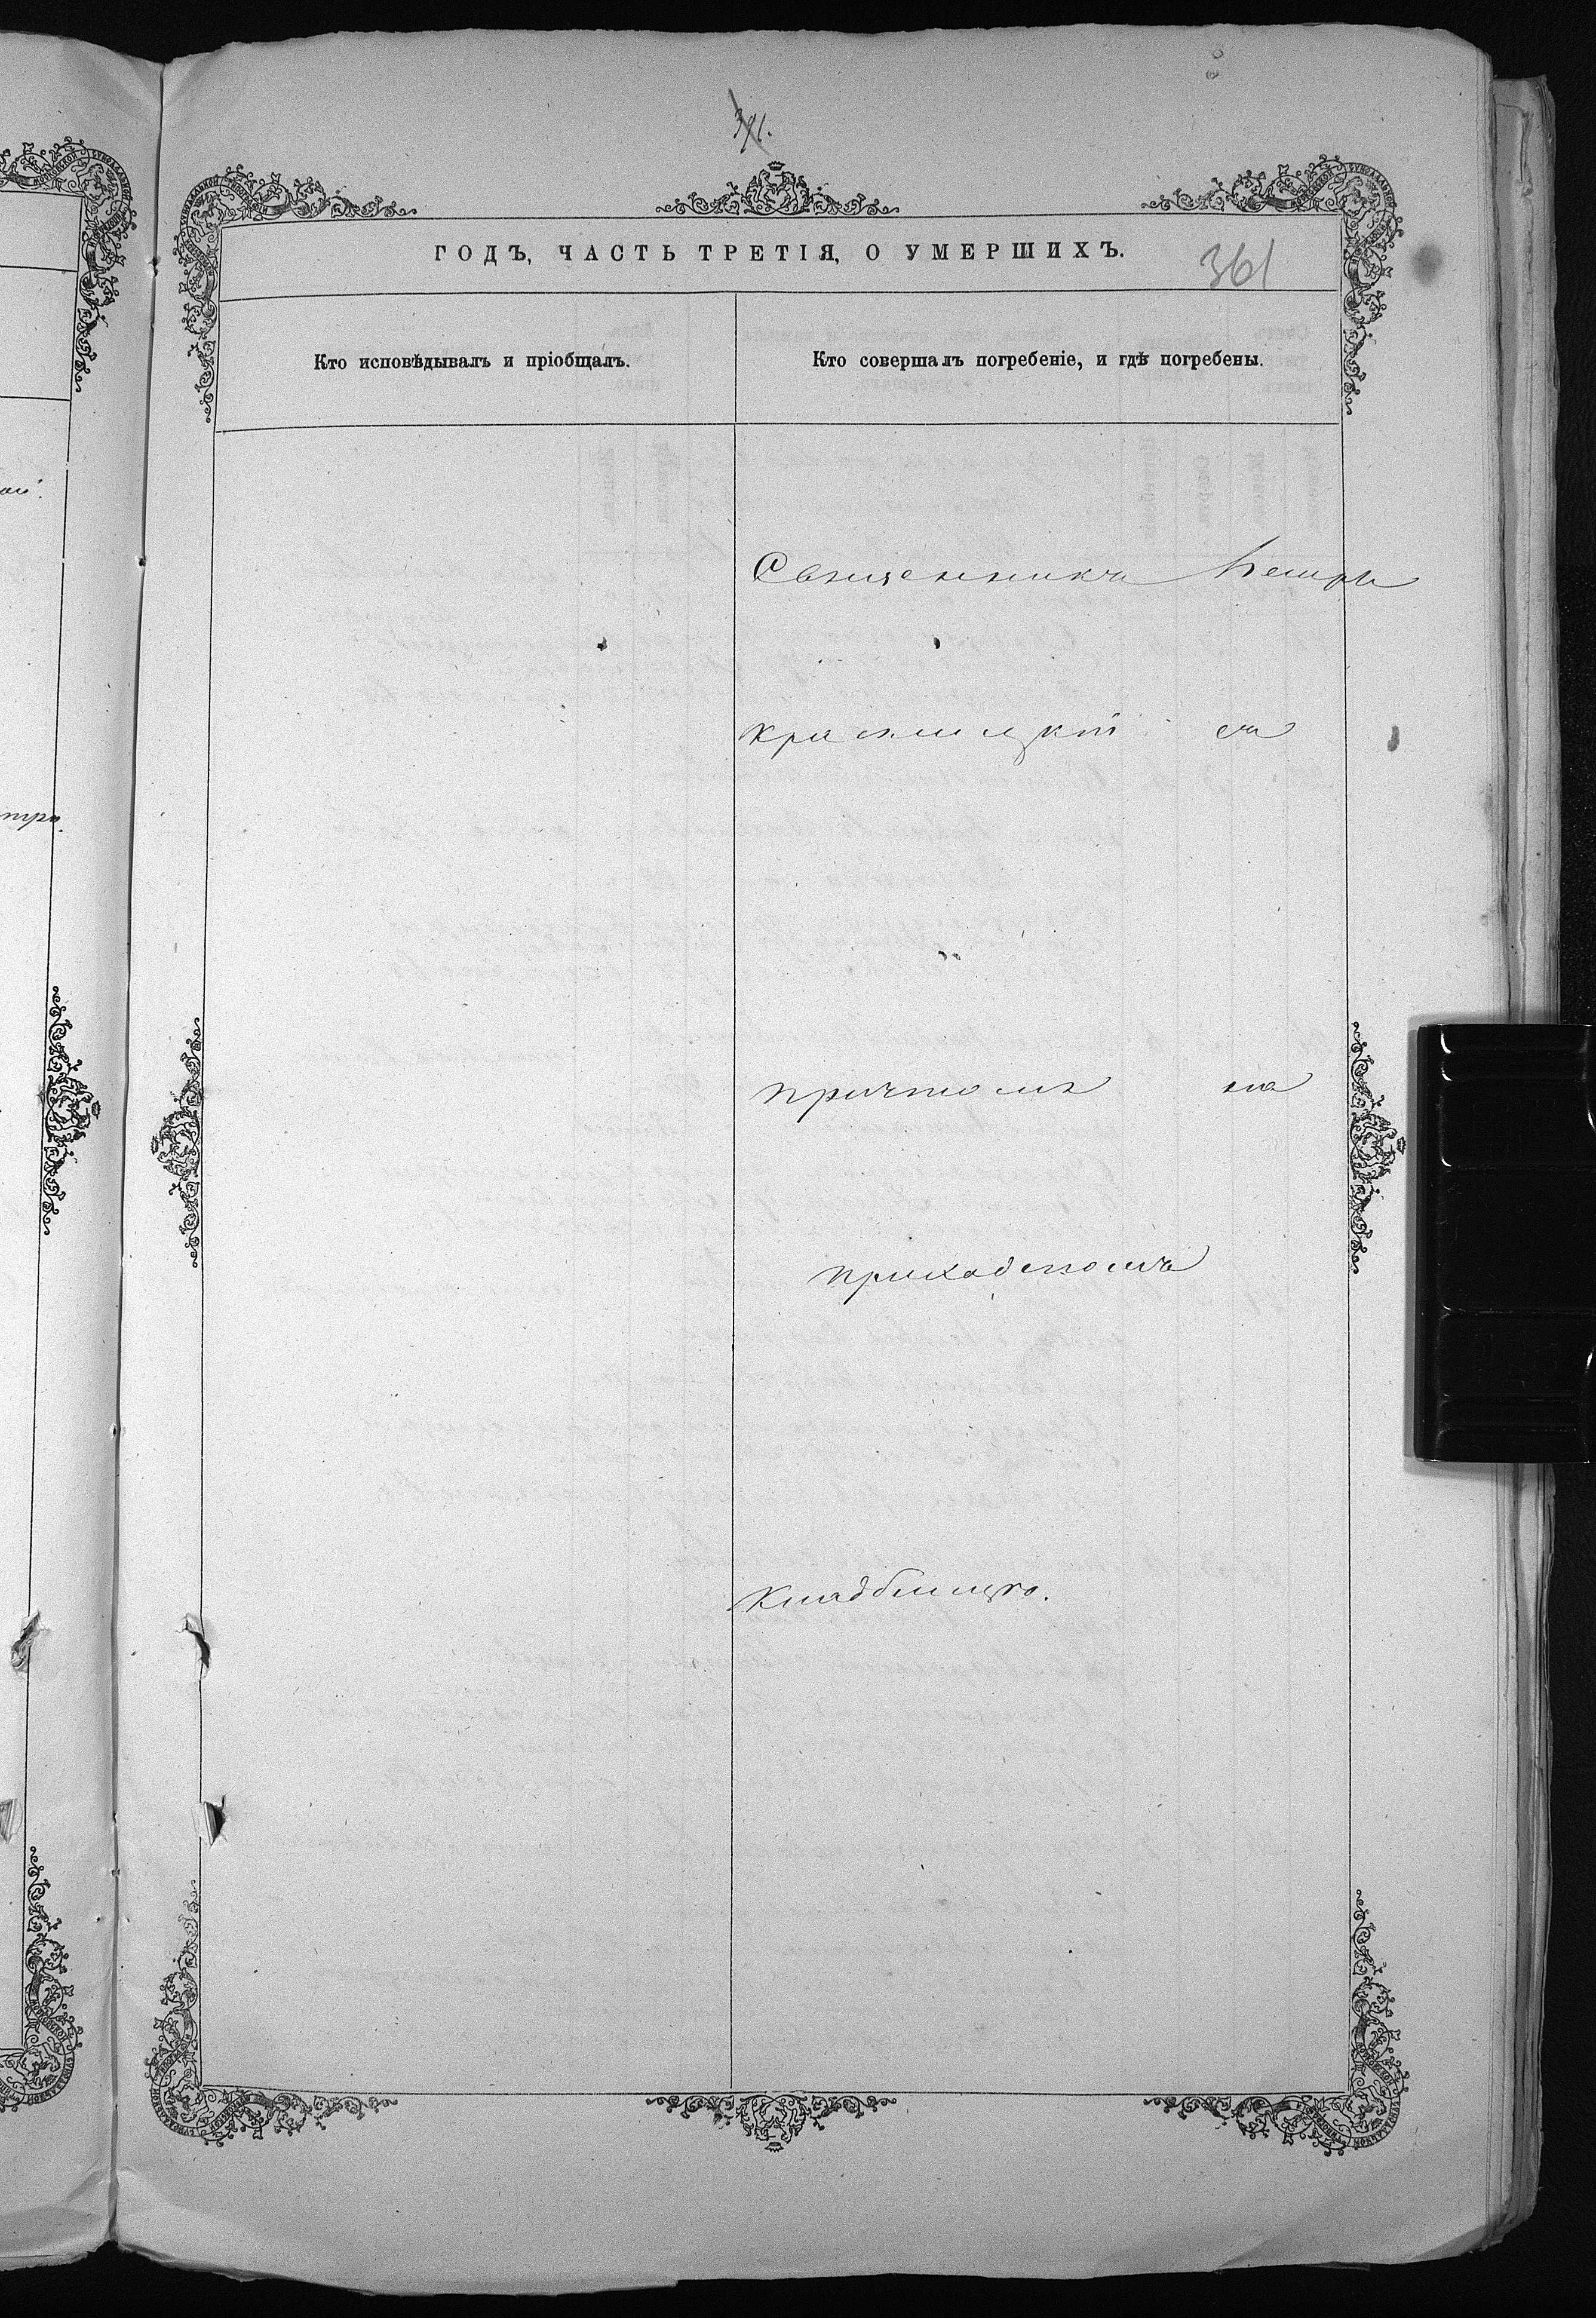 391.
ГОДЪ, ЧАСТЬ ТРЕТІЯ, О УМЕРШИХЪ.
361
Кто исповѣдывалъ и пріобщалъ.
Кто совершалъ погребеніе, и гдѣ погребены.
Священникъ Петръ
съ
причтомъ на
приходскомъ
кладбищѣ.